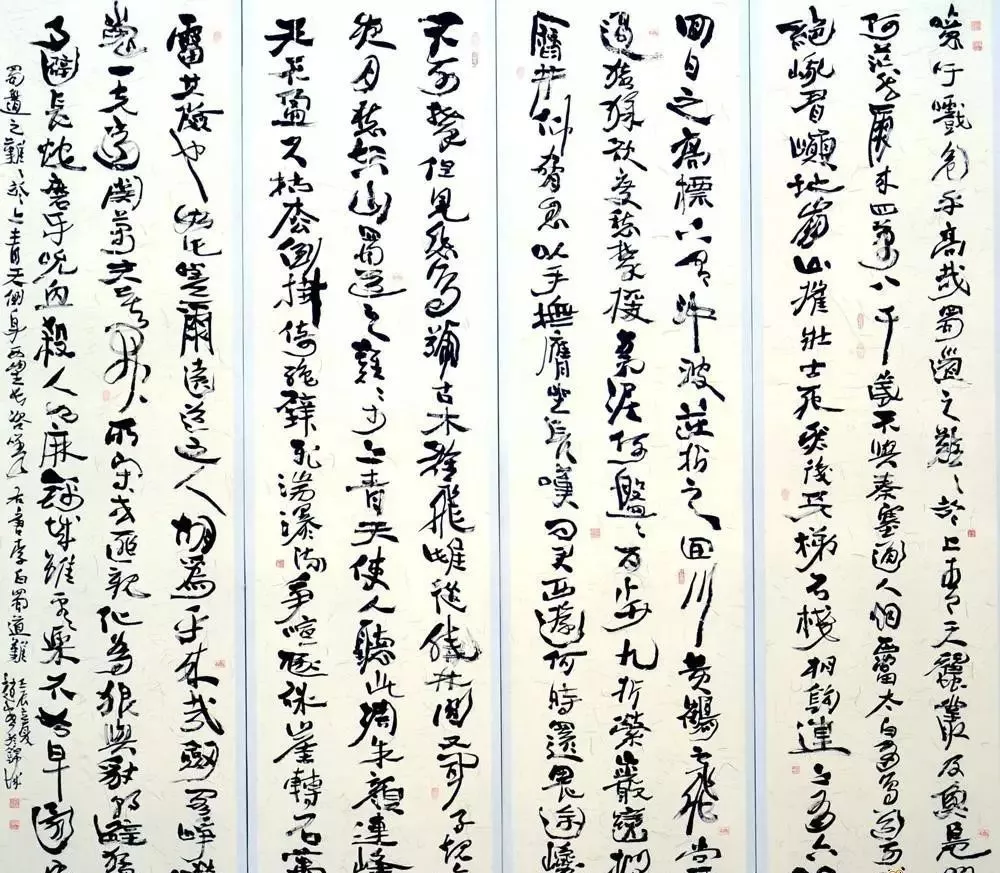 噫吁戲危乎高哉蜀道之難〻於上青天蠶叢及魚
何茫然爾來四萬八千歲不與秦塞通人烟西當太白有鳥道可
絕峨眉巔地崩山摧壯士死然後天梯石棧相鉤連上有六
回日之高標下有沖波逆折之回川黃鶴之飛尚
過猿猱欲度愁攀援青泥何盤〻百步九折縈巖巒捫
曆井仰脅息以手撫膺坐長嘆問君西遊何時還畏途巉
不可攀但見悲鳥號古木雄飛雌從繞林間又聞子規
夜月愁空山蜀道之難〻於上青天使人聽此凋朱顏連峰
去天不盈尺枯松倒掛倚絕壁飛湍瀑流爭喧豗砯崖轉石萬
雷其險也如此嗟爾遠道之人胡為乎來哉劍閣崢
嵬一夫當關萬夫莫開所守或匪親化為狼與豺朝避猛
夕避長蛇磨牙吮血殺人如麻錦城雖云樂不如早還
蜀道之難〻於上青天側身西望長咨嗟 右書李白蜀道難
壬辰之夏